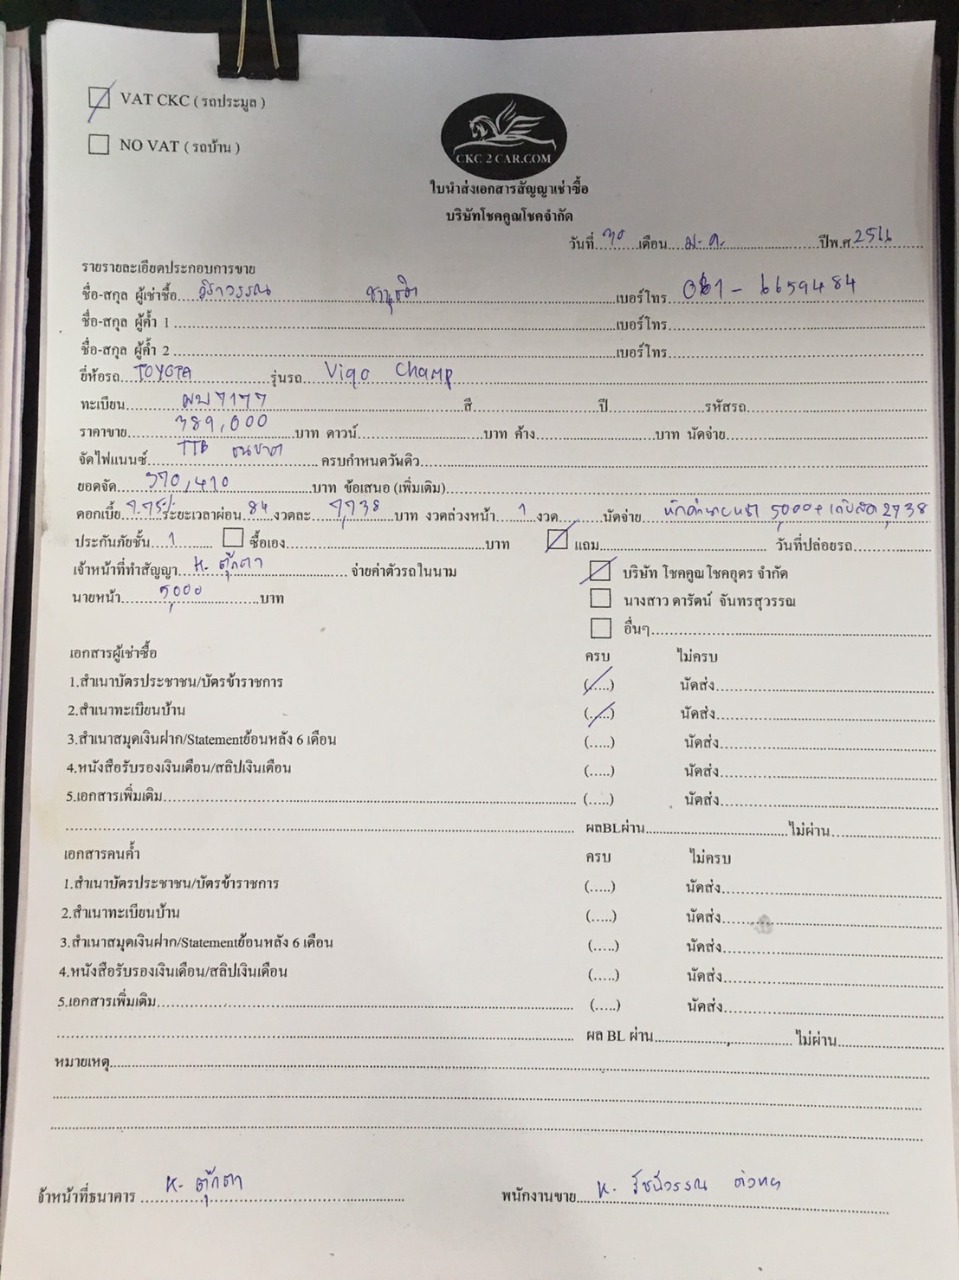 VAT CKC ( รถประมูล )
NO VAT ( รถบ้าน )
CKC 2 CAR.COM
ใบนำส่งเอกสารสัญญาเช่าซื้อ
บริษัทโชคคูณโชคจำกัด
วันที่ 30 เดือน ม.ค. ปีพ.ศ. 2566
รายรายละเอียดประกอบการขาย
ชื่อ-สกุล ผู้เช่าซื้อ เบอร์โทร 061-6659484
ชื่อ-สกุล ผู้ค้ำ 1 เบอร์โทร
ชื่อ-สกุล ผู้ค้ำ 2 เบอร์โทร
ยี่ห้อรถ TOYOTA รุ่นรถ Vigo Champ
ทะเบียน ผบ 7177 สี ปี รหัสรถ
ราคาขาย 389,000 บาท ดาวน์ บาท ค้าง บาท นัดจ่าย
จัดไฟแนนซ์ TTB ธนชาต ครบกำหนดวันดิว
ยอดจัด 370,410 บาท ข้อเสนอ (เพิ่มเติม)
ดอกเบี้ย 7.75% ระยะเวลาผ่อน 84 งวดละ 7,738 บาท งวดล่วงหน้า 1 งวด นัดจ่าย หักค่านายหน้า 5,000 + เก็บสด 2,738
ประกันภัยชั้น 1 ซื้อเอง บาท แถม วันที่ปล่อยรถ
เจ้าหน้าที่ทำสัญญา K. ตุ๊กตา จ่ายค่าตัวรถในนาม บริษัท โชคคูณโชคอุดร จำกัด
นายหน้า 5,000 บาท นางสาว ดารัตน์ จันทรสุวรรณ
อื่นๆ
เอกสารผู้เช่าซื้อ ครบ ไม่ครบ
1.สำเนาบัตรประชาชน/บัตรข้าราชการ (.....) นัดส่ง
2.สำเนาทะเบียนบ้าน (.....) นัดส่ง
3.สำเนาสมุดเงินฝาก/Statementย้อนหลัง 6 เดือน (.....) นัดส่ง
4.หนังสือรับรองเงินเดือน/สลิปเงินเดือน (.....) นัดส่ง
5.เอกสารเพิ่มเติม (.....) นัดส่ง
ผลBLผ่าน ไม่ผ่าน
เอกสารคนค้ำ ครบ ไม่ครบ
1.สำเนาบัตรประชาชน/บัตรข้าราชการ (.....) นัดส่ง
2.สำเนาทะเบียนบ้าน (.....) นัดส่ง
3.สำเนาสมุดเงินฝาก/Statementย้อนหลัง 6 เดือน (.....) นัดส่ง
4.หนังสือรับรองเงินเดือน/สลิปเงินเดือน (.....) นัดส่ง
5.เอกสารเพิ่มเติม (.....) นัดส่ง
ผล BL ผ่าน ไม่ผ่าน
หมายเหตุ
จ้าหน้าที่ธนาคาร K. ตุ๊กตา พนักงานขาย K. รัชนีวรรณ